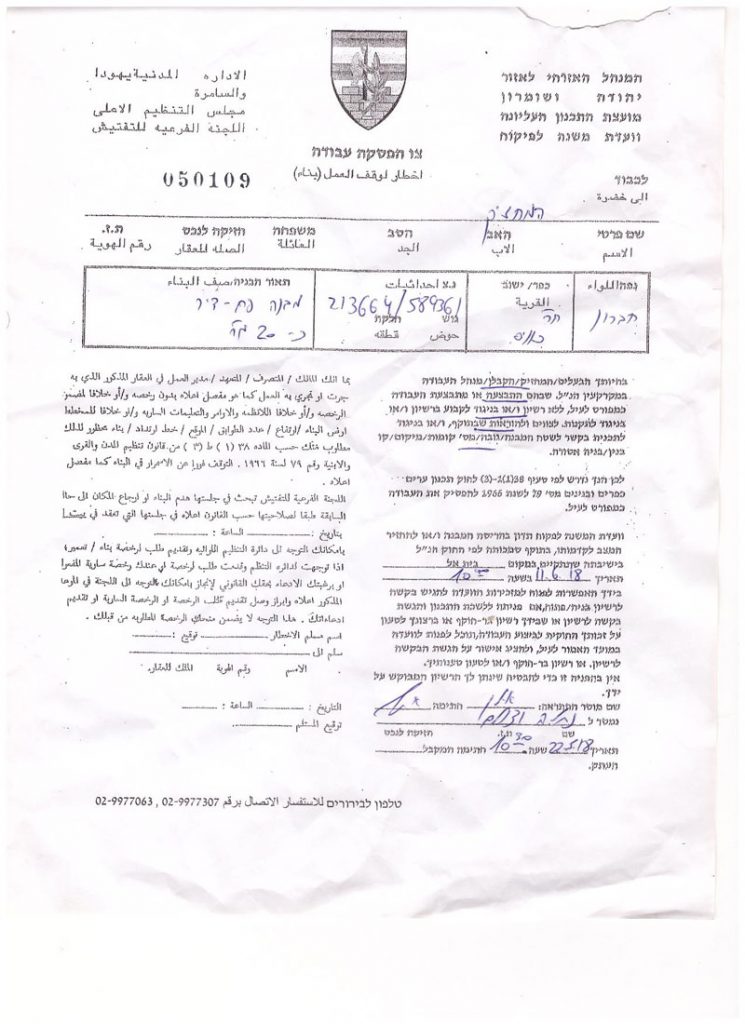 המנהל האזרחי לאזור
יהודה ושומרון
מועצת התכנון העליונה
וועדת משנה לפיקוח
الاداره المدنية يهودا
والسامرة
مجلس التنظيم الاعلى
اللجنة الفرعيه للتفتيش
צו הפסקת עבודה
اخطار لوقف العمل (بناء)
050109
לכבוד
الى حضرة
המחזיק
שם פרטי האב הסב משפחה חזיקה לנכס ת.ז.
الاسم الاب الجد العائلة الصله للعقار رقم الهوية
נפה/לואء
חברון
כפר/ ישוב
القرية
נ.צ احداثيات
213664/589361
גוש חלקה
حوض قطعه
תאור הבניה/صيف البناء
מבנה פח-דיר
כ- 20 מ"ר
בהיותך הבעלים/המחזיק/הקבלן/מנהל העבודה
במקרקעין הנ"ל, שבהם התבצעה או מתבצעת העבודה
כמפורט לעיל, ללא רשיון ו/או בניגוד לקבוע ברשיון ו/או
בניגוד לתקנות, לצווים ולהוראות שבתוקף, ו/או בניגוד
לתכנית בקשר לשטח המבנה/גובה/מס' קומות/מיקום/קו
בנין/בניה אסורה.
לכן הנך נדרש לפי סעיף 38(1)(ב-3) לחוק תכנון ערים
כפרים ובנינים מס' 79 לשנת 1966 להפסיק את העבודה
כמפורט לעיל.
וועדת המשנה לפקוח תדון בהריסת המבנה ו/או להחזיר
המצב לקדמותו, בתוקף סמכותה לפי החוק הנ"ל
בישיבתה שתתקיים במקום בית אל
תאריך 11.6.18 בשעה 10:00
בידך האפשרות לפנות למזכירות הוועדה להגיש בקשה
לרשיון בניה/פתוח, אם פניתה ללשכת התכנון והגשת
בקשה לרשיון או שבידך רשיון בר-תוקף או ברצונך לטעון
על זכותך החוקית לביצוע העבודה, תוכל לפנות לוועדה
במועד האמור לעיל, ולהציג אישור על הגשת הבקשה
לרשיון, או רשיון בר-תוקף ו/או לטעון טענותיך.
אין בהפניה זו כדי להבטיח שינתן לך הרשיון המבוקש על
ידך.
שם מוסר ההתראה: חתימה
נמסר ל
שם ת.ז. חזיקה לנכס
תאריך 22.5.18 שעה 10:30 חתימה המקבל
העתק.
بما انك المالك / المتصرف / المتعهد / مدير العمل في العقار المذكور الذي به
جرت او تجري به العمل كما هو مفصل اعلاه بدون رخصه و/أو خلافا لمضمون
الرخصه و/أو خلافا للانظمه والاوامر والتعليمات الساريه و/او خلافا للمخطط
ارض البناء /ارتفاع / عدد الطوابق / الموقع / خط ارتداد / بناء محظور لذلك
مطلوب منك حسب الماده ٣٨ (١) ط (٣) من قانون تنظيم المدن والقرى
والابنية رقم ٧٩ لسنة ١٩٦٦ . التوقف فورا عن الاستمرار في البناء كما مفصل
اعلاه .
اللجنة الفرعية للتفتيش تبحث في جلستها هدم البناء او ارجاع المكان الى حالته
السابقة طبقا لصلاحيتها حسب القانون اعلاه في جلستها التي تعقد في
بتاريخ الساعة :
بامكانك التوجه الى دائرة التنظيم اللوائيه وتقديم طلب لرخصة بناء / تعمير،
اذا توجهت لدائره التنظيم وقدمت طلب لرخصة او عندك رخصة سارية المفعول
او برغبتك الادعاء بحقك القانوني لإنجاز بامكانك التوجه الى اللجنة في الموعد
المذكور اعلاه وابراز وصل تقديم طلب الرخصة او الرخصة السارية او تقديم
ادعاءاتك . هذا التوجه لا يضمن منحك الرخصة المطلوبه من قبلك .
اسم مسلم الاخطار توقيع :
سلم الى
الاسم رقم الهوية المالك للعقار.
التاريخ : الساعة :
توقيع المستلم
טלפון לבירורים للاستفسار الاتصال برقم 02-9977307 , 02-9977063